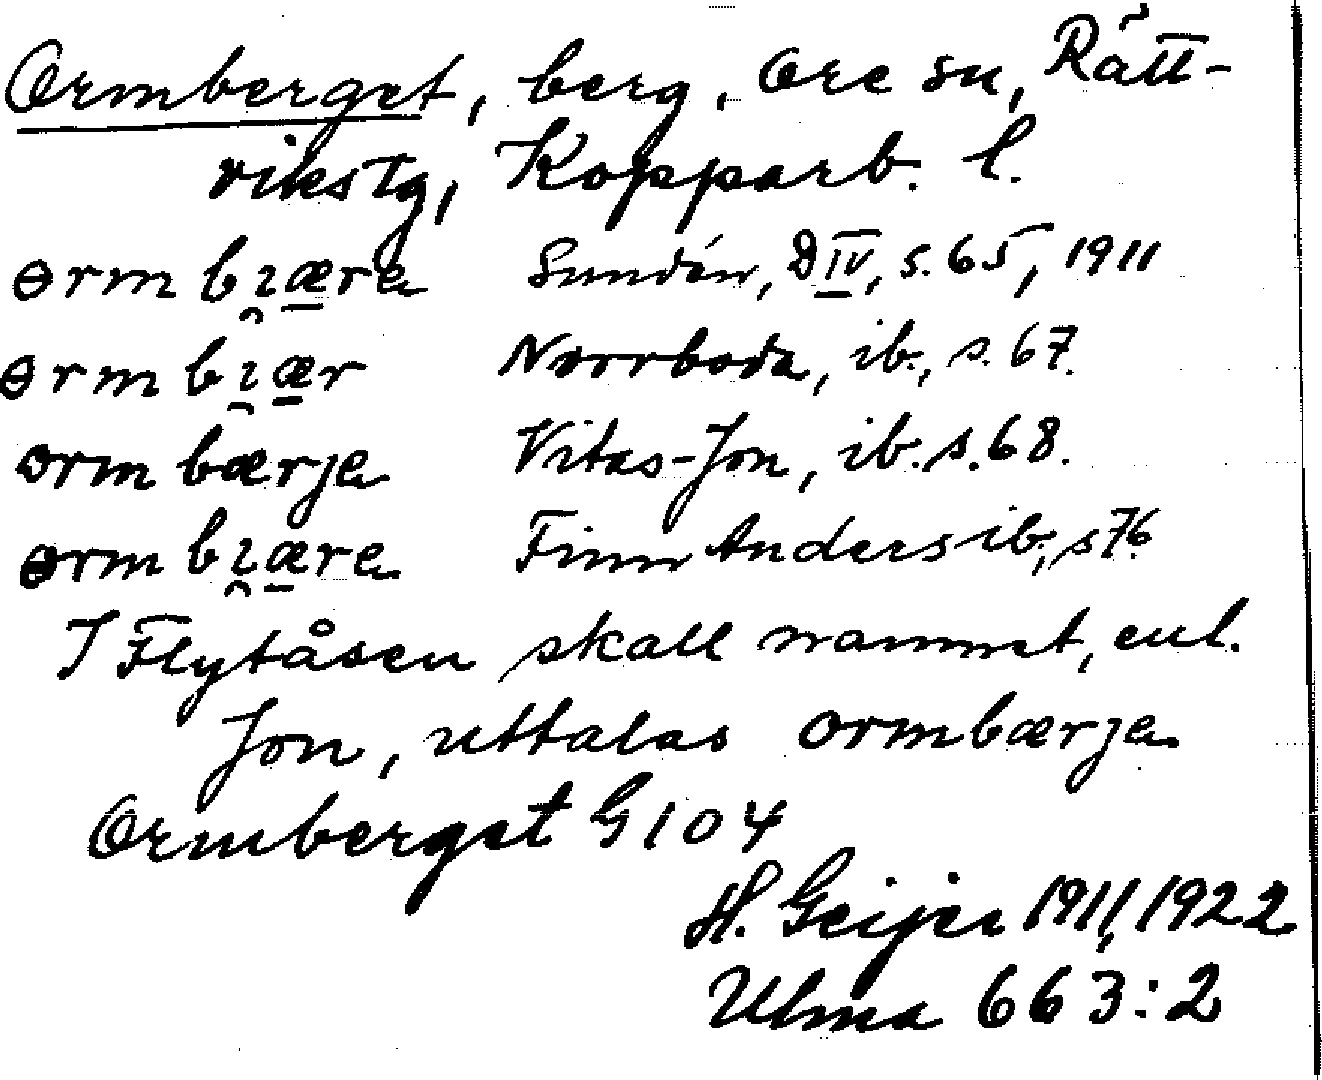 Ormberget, berg, Ore sn, Rätt-
vikstg, Kopparb. l.
ɵrmbı̯æ̱ra Sundén, D IV, s. 65, 1911
ɵrmbı̯æ̱r Norrboda, ib., s. 67.
ormbærja Vitas-Jon, ib. s. 68.
ɵrmbı̯æ̱ra Finn Anders ib., s 76.
I Flytåsen skall namnet, enl.
Jon, uttalas ormbærja
Ormberget G 104
H. Geijer 1911, 1922
Ulma 663:2